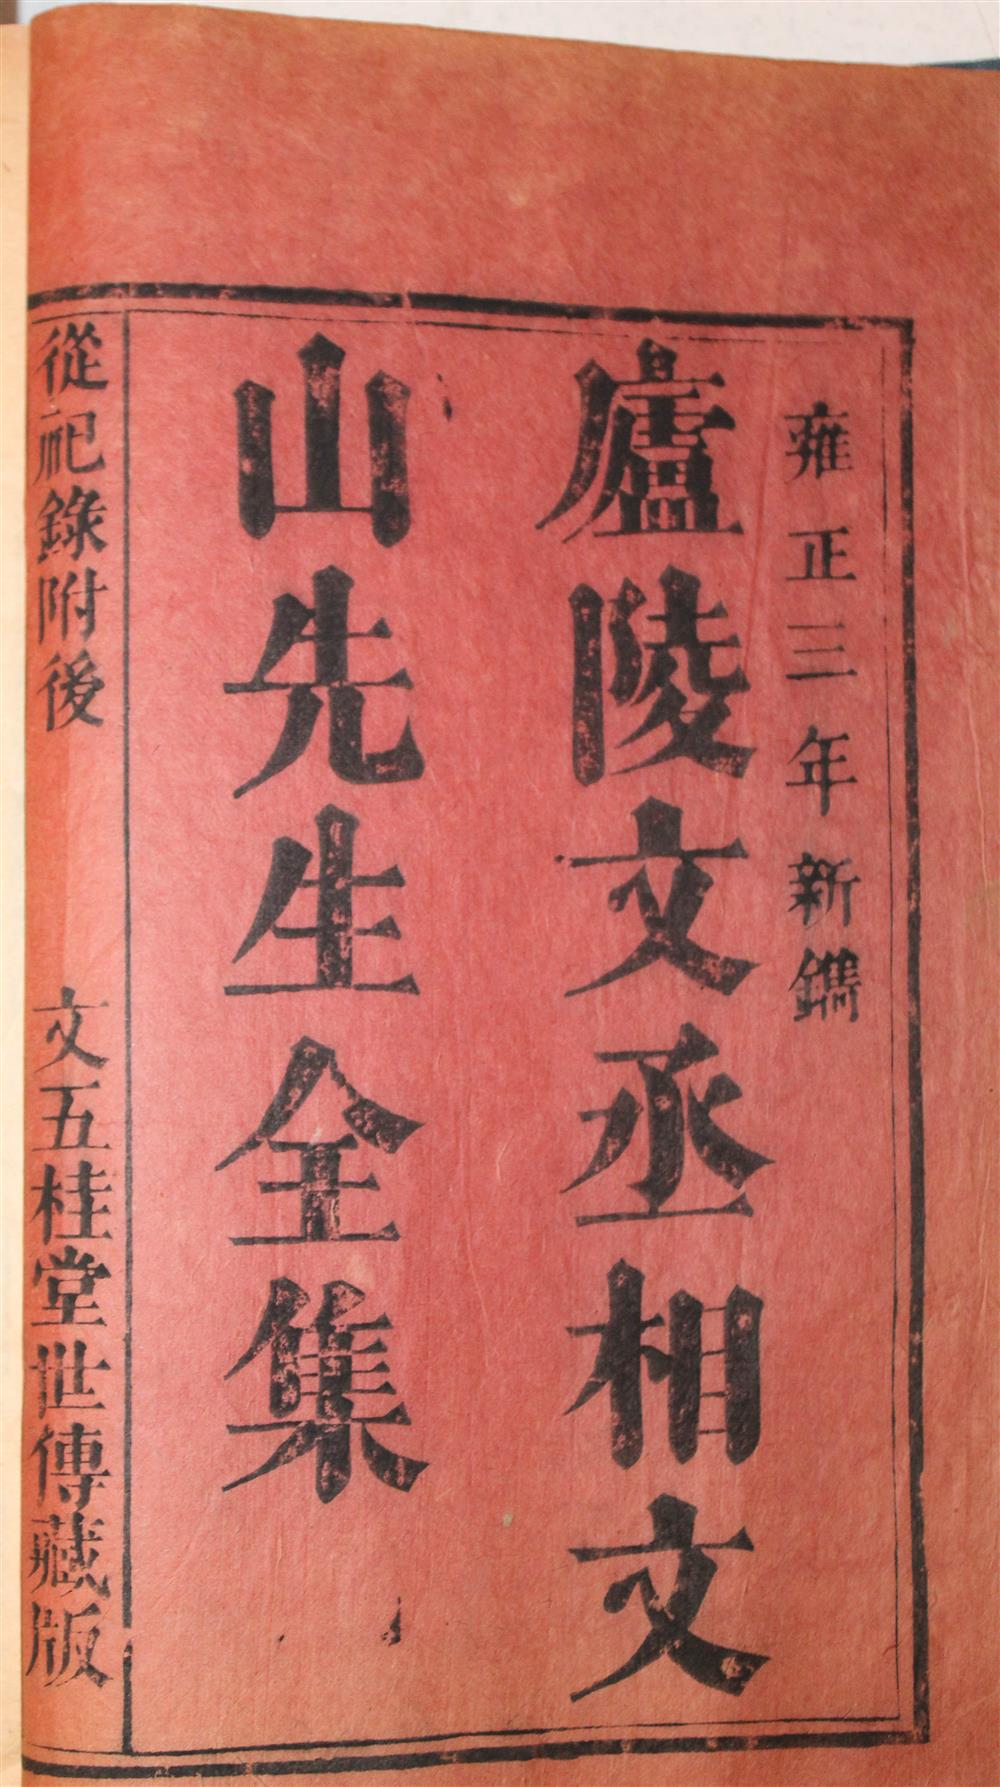 雍正三年新鐫
廬陵文丞相文
山先生全集
從祀錄附後
文五桂堂世傳藏版